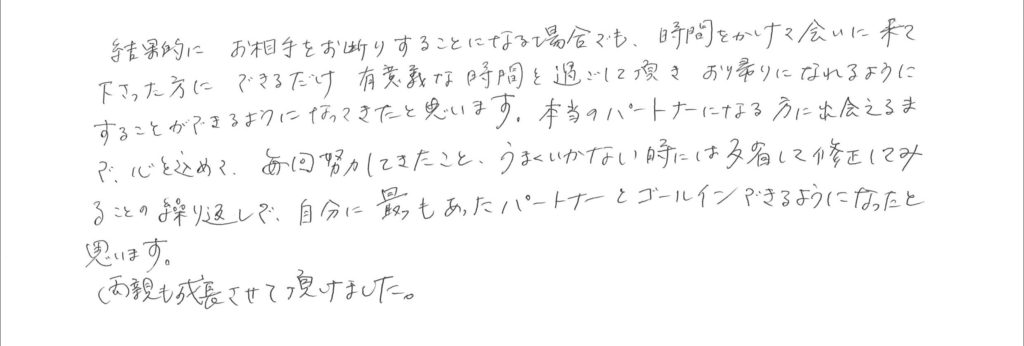 結果的に お相手をお断りすることになる場合でも、時間をかけて会いに来て
下さった方に できるだけ 有意義な時間を過ごして頂き お帰りになれるように
することができるようになってきたと思います。本当のパートナーになる方に出会えるま
で、心を込めて、毎回努力してきたこと、うまくいかない時には反省して修正してみ
ることの繰り返しで、自分に最っもあったパートナーとゴールインできるようになったと
思います。
(両親も成長させて頂けました。